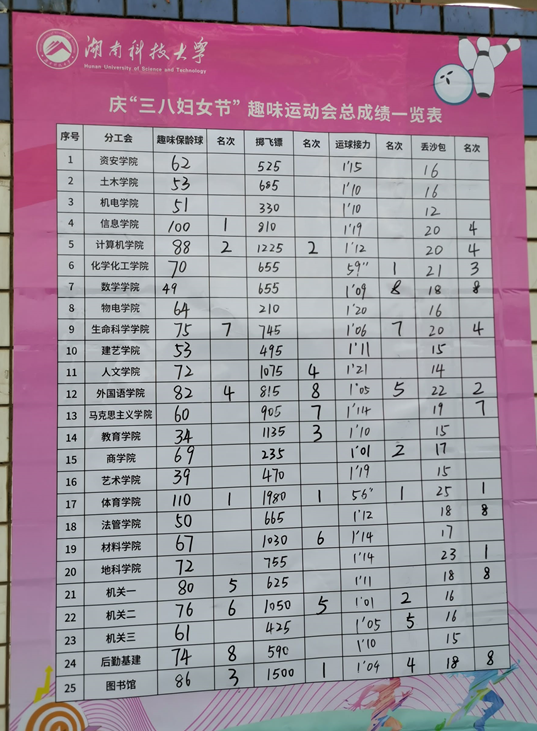 湖南科技大学
Hunan University of Science and Technology
庆“三八妇女节”趣味运动会总成绩一览表
序号 分工会 趣味保龄球 名次 掷飞镖 名次 运球接力 名次 丢沙包 名次
1 资安学院 62 525 1'15 16
2 土木学院 53 685 1'10 16
3 机电学院 51 330 1'10 12
4 信息学院 100 1 810 1'19 20 4
5 计算机学院 88 2 1225 2 1'12 20 4
6 化学化工学院 70 655 59" 1 21 3
7 数学学院 49 655 1'09 8 18 8
8 物电学院 64 210 1'20 16
9 生命科学学院 75 7 745 1'06 7 20 4
10 建艺学院 53 495 1'11 15
11 人文学院 72 1075 4 1'21 14
12 外国语学院 82 4 815 8 1'05 5 22 2
13 马克思主义学院 60 905 7 1'14 19 7
14 教育学院 34 1135 3 1'10 15
15 商学院 69 235 1'01 2 17
16 艺术学院 39 470 1'19 15
17 体育学院 110 1 1980 1 56" 1 25 1
18 法管学院 50 665 1'12 18 8
19 材料学院 67 1030 6 1'14 17
20 地科学院 72 755 1'14 23 1
21 机关一 80 5 625 1'11 18 8
22 机关二 76 6 1050 5 1'01 2 16
23 机关三 61 425 1'05 5 16
24 后勤基建 74 8 590 1'10 15
25 图书馆 86 3 1500 1 1'04 4 18 8